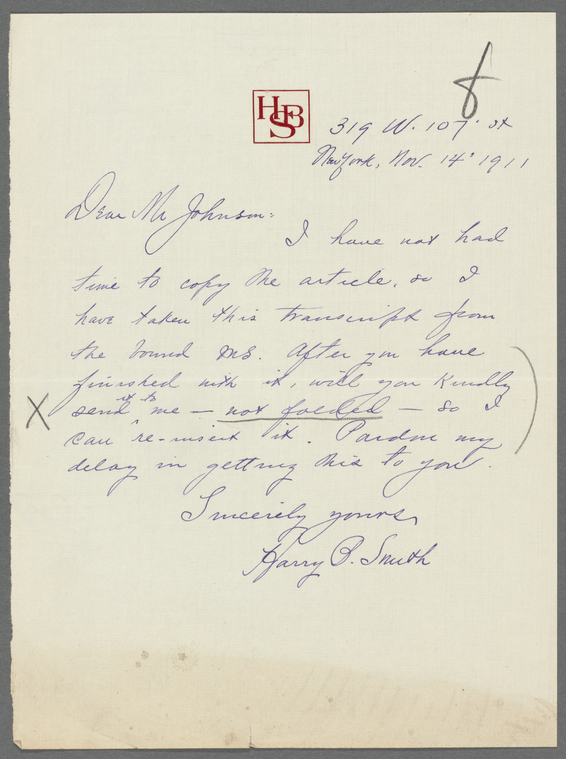 HBS
319 W. 107' St
New York, Nov. 14' 1911
Dear Mr Johnson:
I have not had
time to copy the article, so I
have taken this transcript from
the bound MS. After you have
finished with it, will you kindly
send it to me — not folded — so I
can re-insert it. Pardon my
delay in getting this to you.
Sincerely yours,
Harry B. Smith